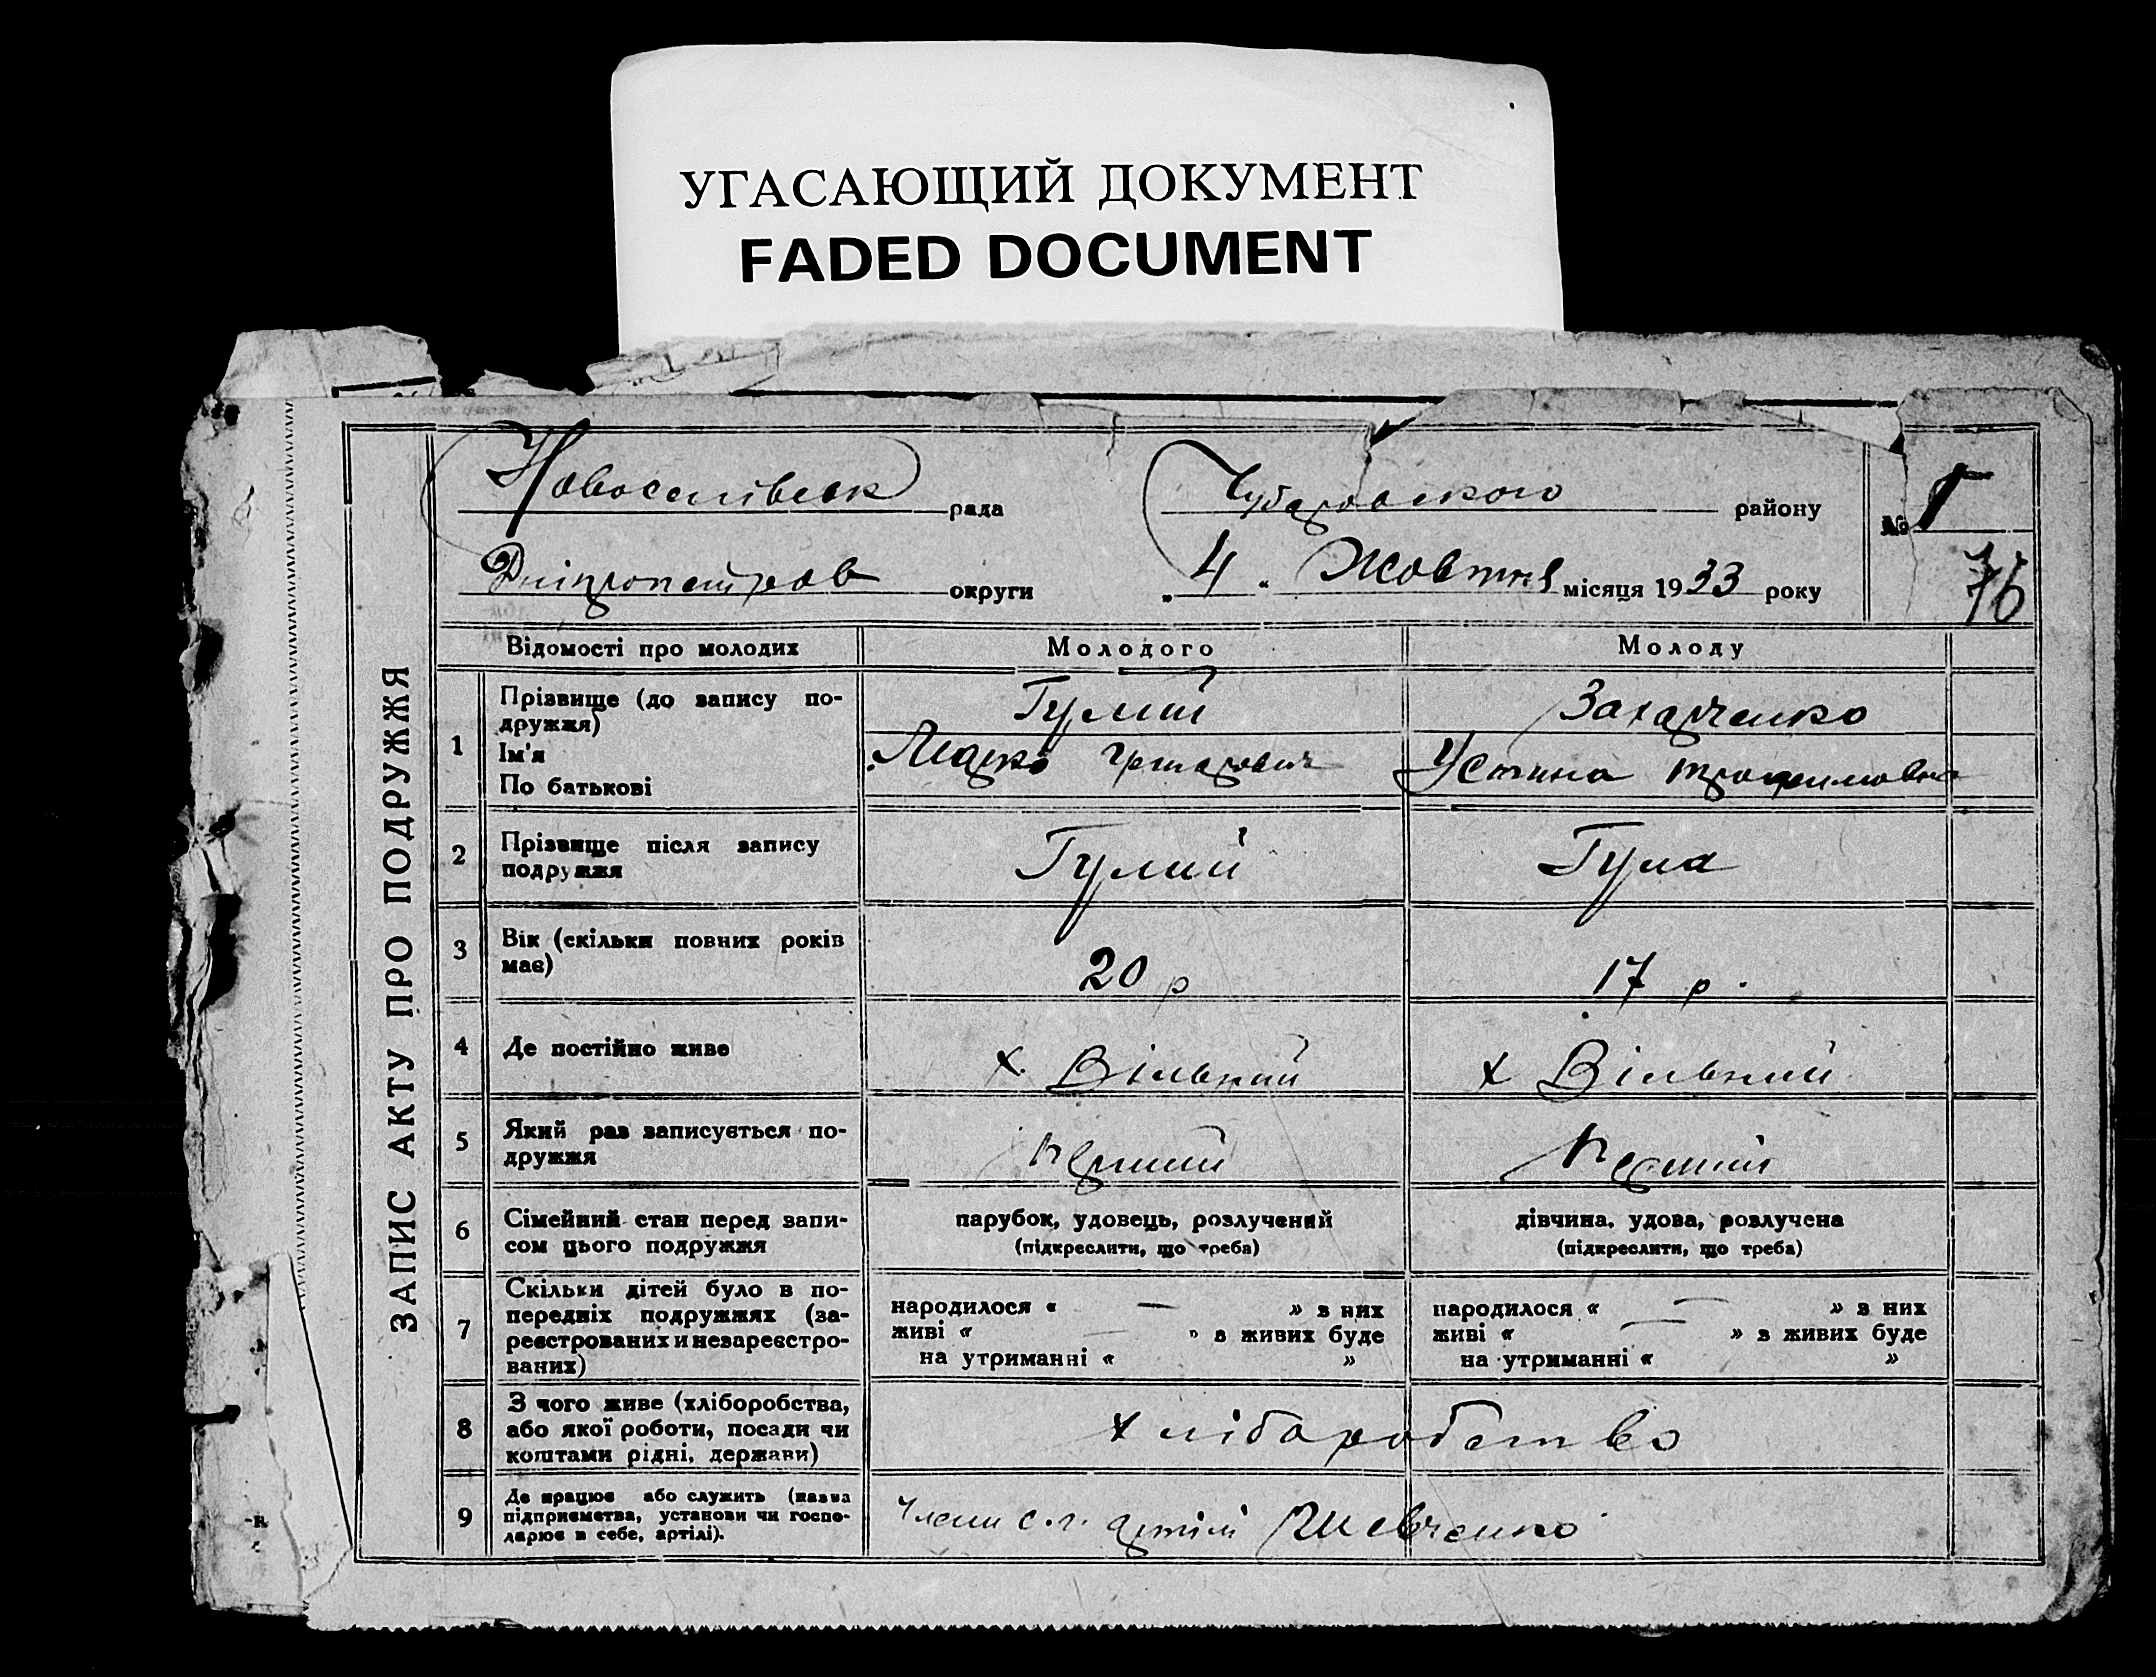 УГАСАЮЩИЙ ДОКУМЕНТ
FADED DOCUMENT
ЗАПИС АКТУ ПРО ПОДРУЖЖЯ
Новоселівськ рада Чубаровского району № 1
Дніпропетров округи „ 4 “ Жовтня місяця 1933 року 76
Відомості про молодих Молодого Молоду
1 Прізвище (до запису по-
дружжя)
Ім'я
По батькові
Гулий Захарченко
Марко Устина Трофимовна
2 Прізвище після запису
подружжя
Гулий Гула
3 Вік (скільки повних років
має)
20 р 17 р.
4 Де постійно живе х. Вільний х Вільний
5 Який раз записується по-
дружжя
Перший Перший
6 Сімейний стан перед запи-
сом цього подружжя
парубок, удовець, розлучений
(підкреслити, що треба)
дівчина, удова, розлучена
(підкреслити, що треба)
7 Скільки дітей було в по-
передніх подружжях (за-
реєстрованих и незареєстро-
ваних)
народилося « — » з них
живі « — » з живих буде
на утриманні « »
народилося « — » з них
живі « — » з живих буде
на утриманні « »
8 З чого живе (хліборобства,
або якої роботи, посади чи
коштами рідні, держави)
хліборобство
9 Де працює або служить (назва
підприємства, установи чи госпо-
дарює в себе, артілі).
Члени с.г. артілі Шевченко